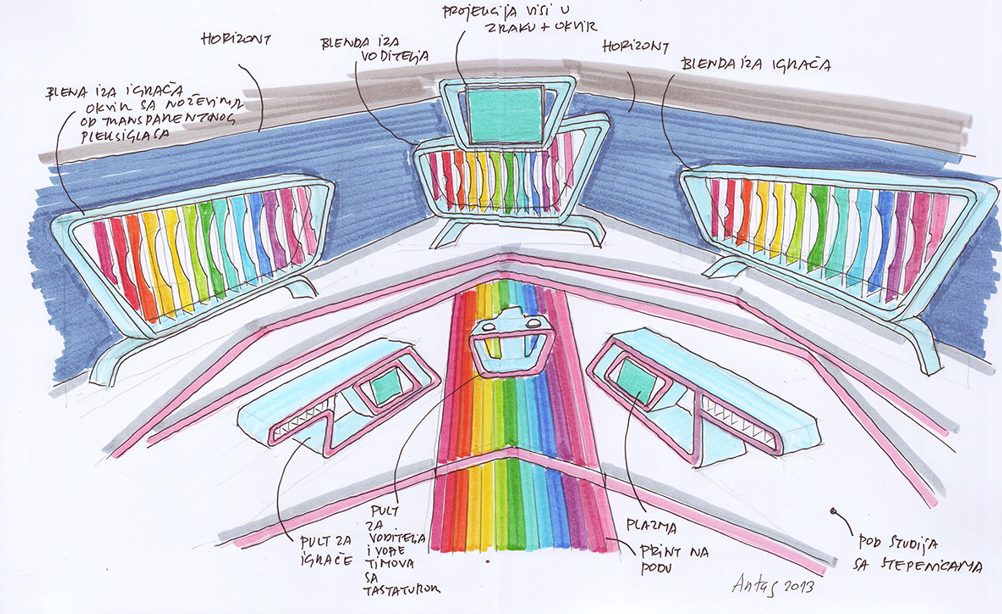 PROJEKCIJA VISI U
ZRAKU + OKVIR
HORIZONT
BLENDA IZA
VODITELJA
HORIZONT
BLENDA IZA IGRAČA
BLENA IZA IGRAČA
OKVIR SA NOŽEVIMA
OD TRANSPARENTNOG
PLEKSIGLASA
PULT ZA
IGRAČE
PULT
ZA
VODITELJA
I VOĐE
TIMOVA
SA
TASTATUROM
PLAZMA
PRINT NA
PODU
POD STUDIJA
SA STEPENICAMA
Antas 2013